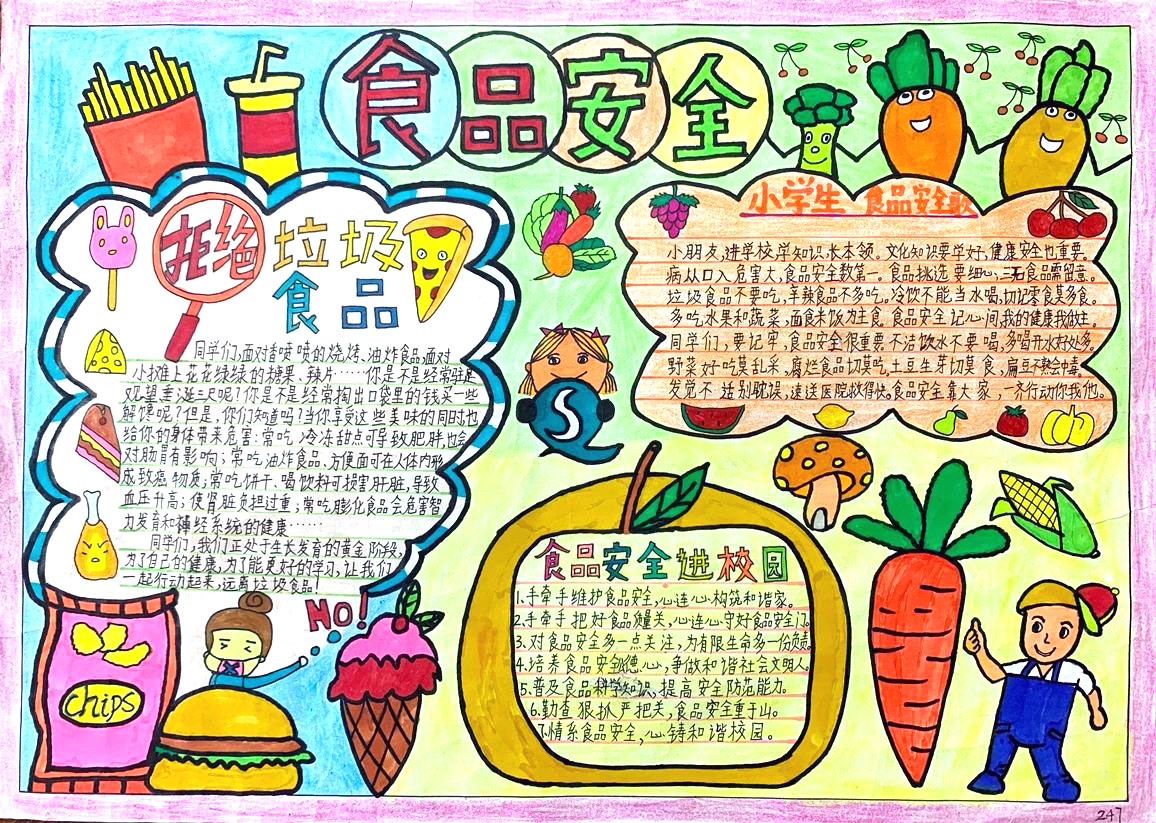 食品安全
拒绝垃圾
食品
同学们,面对香喷喷的烧烤、油炸食品,面对
小摊上花花绿绿的糖果、辣片……你是不是经常驻足
观望垂涎三尺呢?你是不是经常掏出口袋里的钱买一些
解馋呢?但是,你们知道吗?当你享受这些美味的同时,也
给你的身体带来危害:常吃冷冻甜点可导致肥胖,也会
对肠胃有影响;常吃油炸食品、方便面可在人体内形
成致癌物质;常吃饼干、喝饮料可损害肝脏,导致
血压升高;使肾脏负担过重;常吃膨化食品会危害智
力发育和神经系统的健康……
同学们,我们正处于生长发育的黄金阶段,
为了自己的健康,为了能更好的学习,让我们
一起行动起来,远离垃圾食品!
小学生 食品安全歌
小朋友,进学校,学知识,长本领。文化知识要学好,健康安全也重要。
病从口入危害大,食品安全数第一。食品挑选要细心,三无食品需留意。
垃圾食品不要吃,辛辣食品不多吃。冷饮不能当水喝,切记零食莫多食。
多吃水果和蔬菜,面食米饭为主食。食品安全记心间,我的健康我做主。
同学们,要记牢,食品安全很重要。不洁饮水不要喝,多喝开水好处多。
野菜好吃莫乱采,腐烂食品切莫吃,土豆生芽切莫食,扁豆不熟会中毒。
发觉不适别耽误,速送医院救得快。食品安全靠大家,一齐行动你我他。
S
食品安全进校园
1.手牵手维护食品安全,心连心构筑和谐家。
2.手牵手把好食品质量关,心连心守好食品安全门。
3.对食品安全多一点关注,为有限生命多一份负责。
4.培养食品安全德心,争做和谐社会文明人。
5.普及食品科学知识,提高安全防范能力。
6.勤查狠抓严把关,食品安全重于山。
7.情系食品安全,心铸和谐校园。
NO!
chips
247